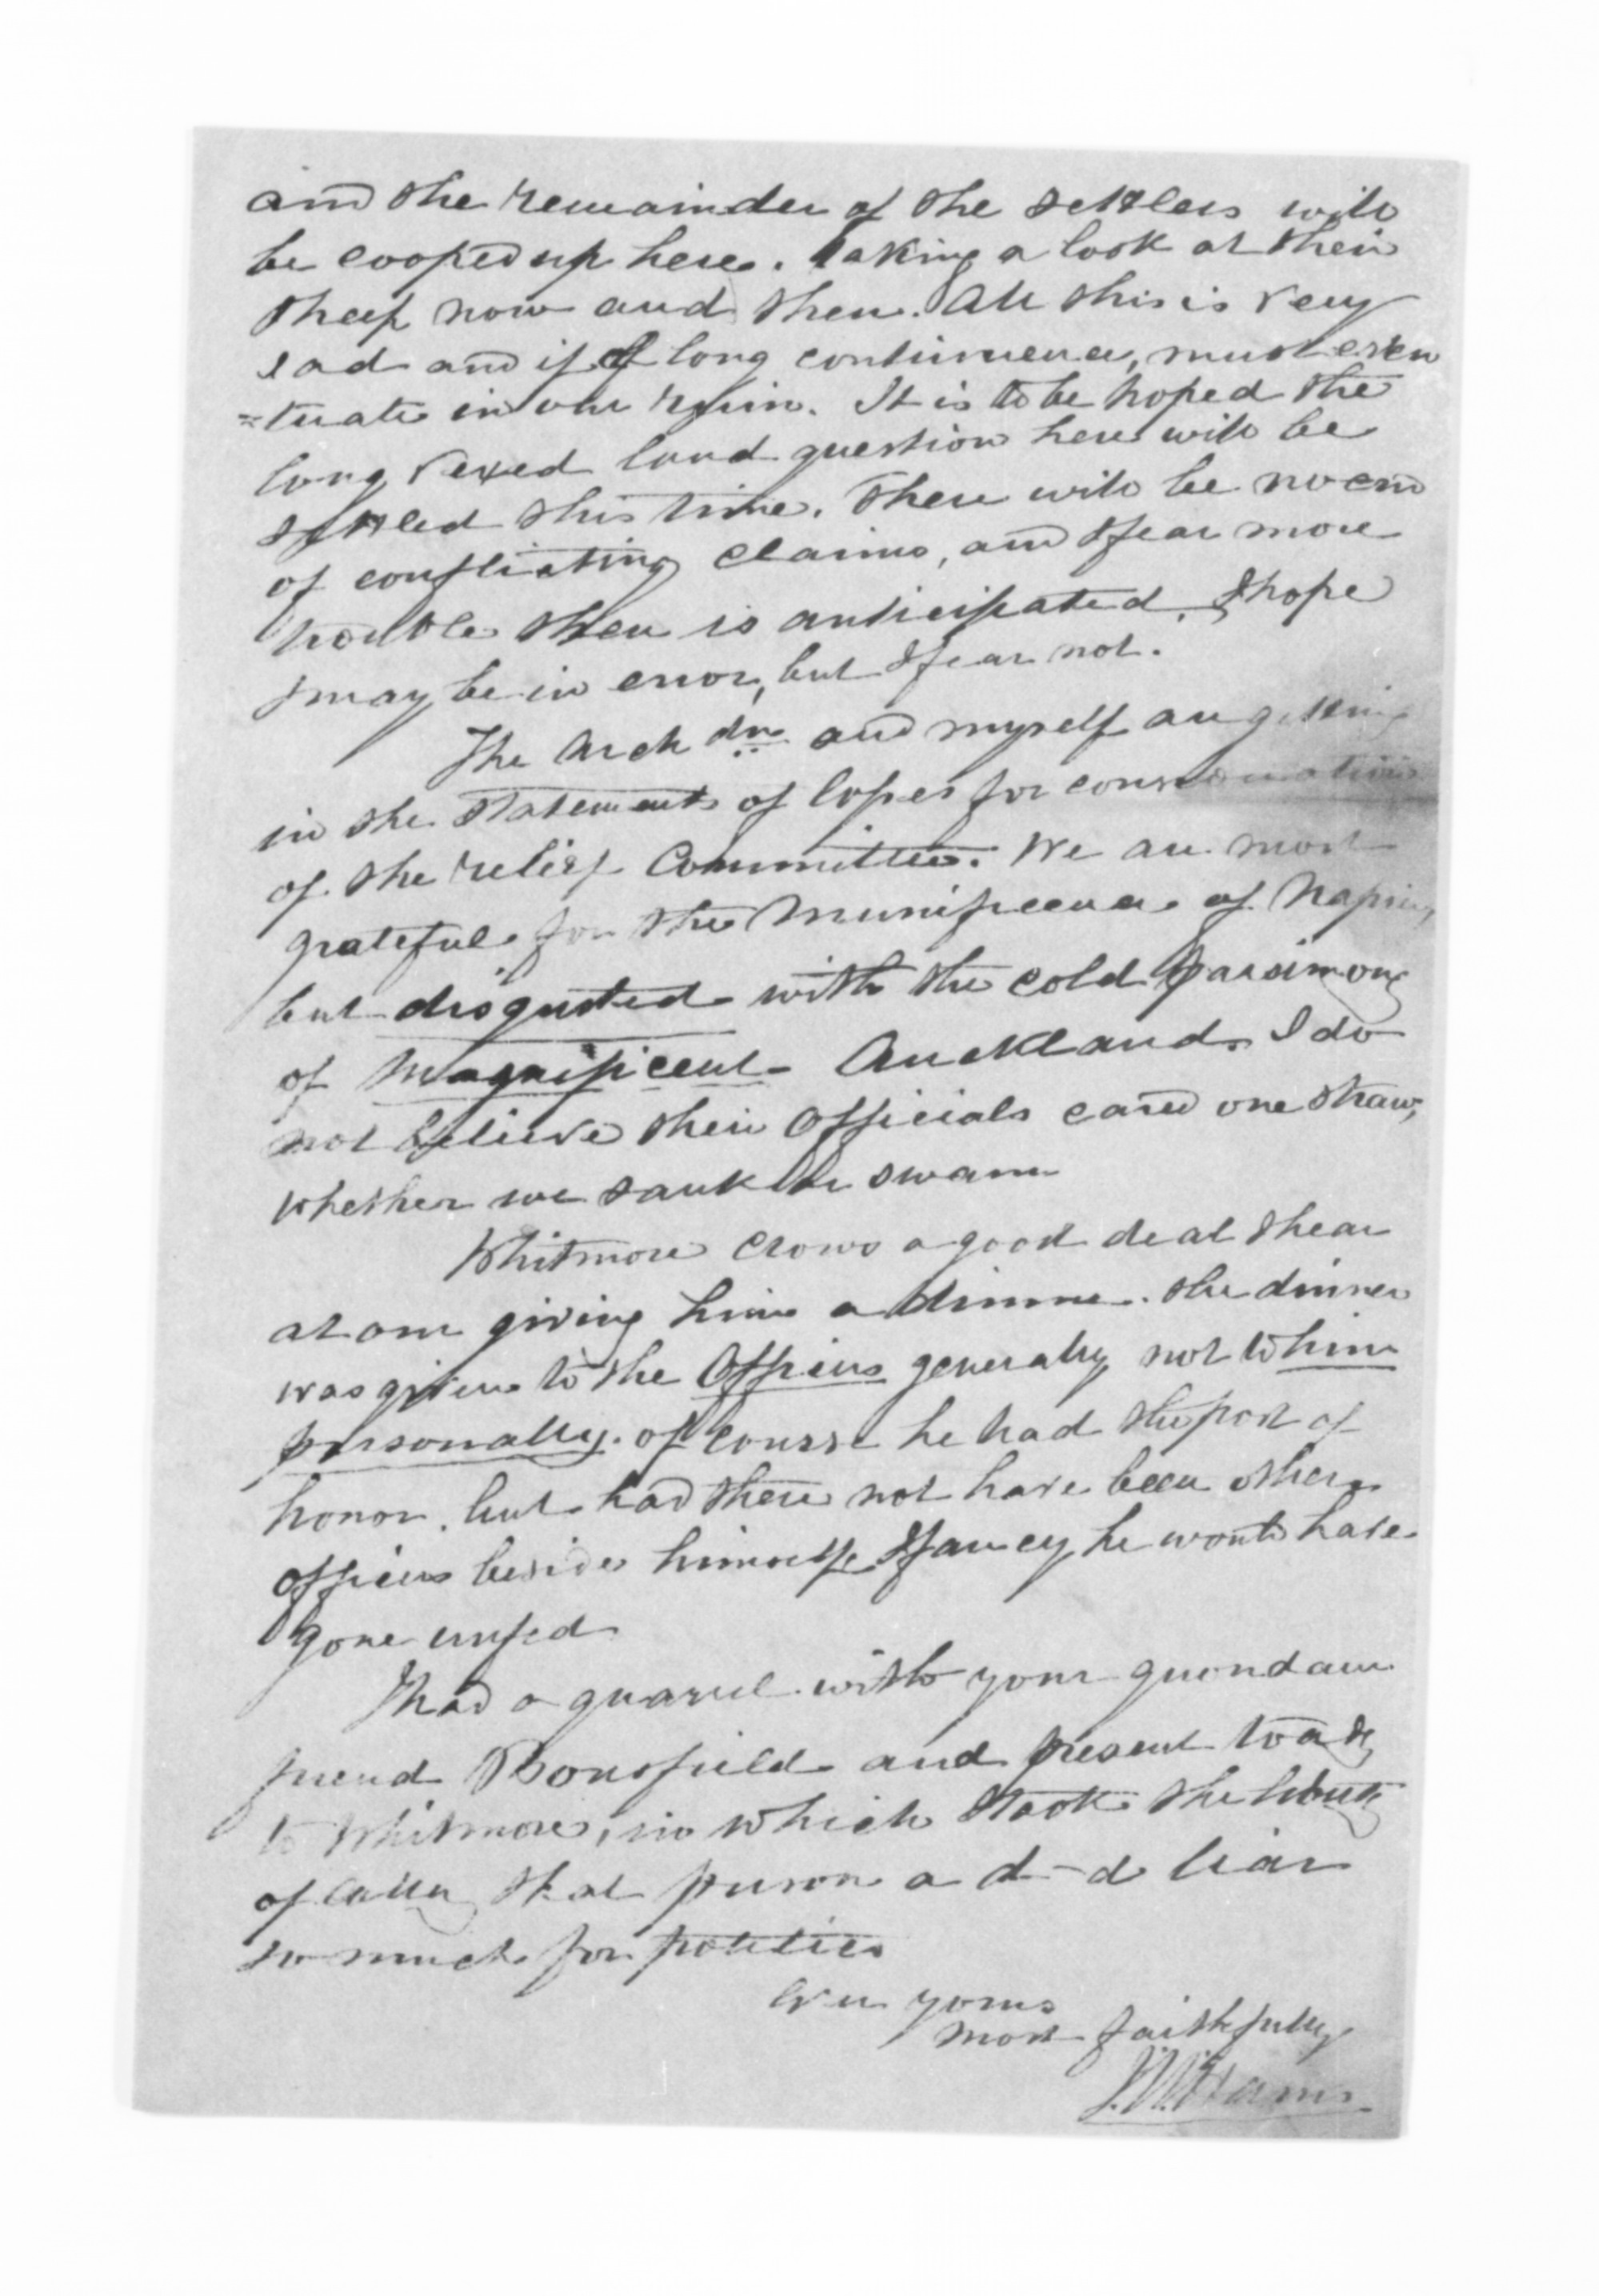 and the remainder of the settlers will
be cooped up here. Taking a look at their
sheep now and then. All this is very
sad and if of long continuance, must even
=tuate in our ruin. It is to be hoped the
long vexed land question here will be
settled this time. There will be no end
of conflicting claims, and I fear more
trouble then is anticipated. I hope
I may be in error, but I fear not.
The Arch dn and myself are getting
in the statements of losses for consideration
of the relief Committee. We are most
grateful for the Munificence of Napier,
but disgusted with the cold parsimony
of Magnificent Auckland. I do
not believe their Officials cared one straw,
whether we sank or swam
Whitmore crows a good deal I hear
at our giving him a dinner. The dinner
was given to the Officers generally not to him
personally. of course he had the post of
honor. but had there not have been other
officers beside himself I fancy he would have
gone unfed
I had a quarrel with your quondam
friend Bousfield and present toady
to Whitmore, in which I took the liberty
of calling that person a d-d liar
so much for politics
Ever yours
most faithfully
J.W. Harris